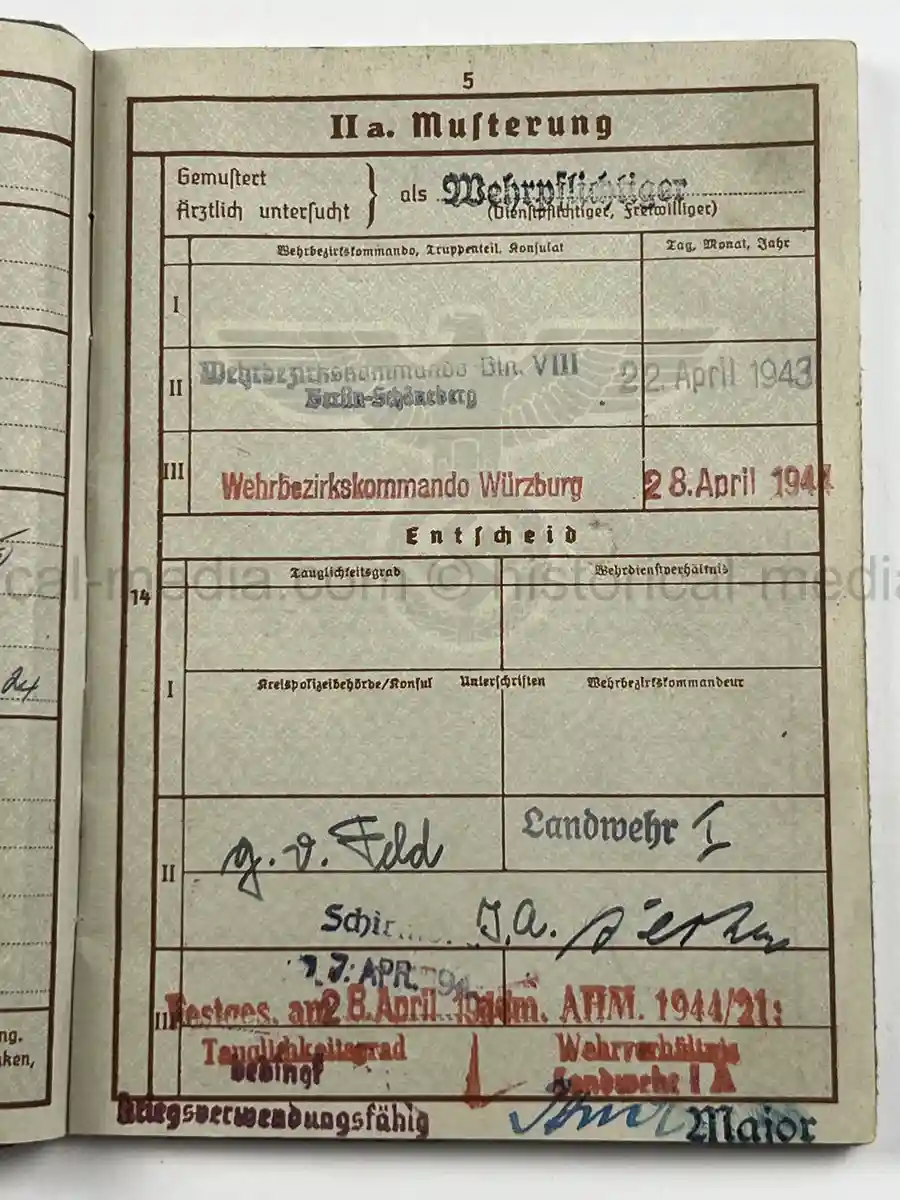 5
II a. Musterung
Gemustert
Ärztlich untersucht
als Wehrpflichtiger
(Dienstpflichtiger, Freiwilliger)
Wehrbezirkskommando, Truppenteil, Konsulat
Tag, Monat, Jahr
I
II
Wehrbezirkskommando Bln. VIII
Berlin-Schöneberg
22. April 1943
III
Wehrbezirkskommando Würzburg
28. April 1944
Entscheid
14
Tauglichkeitsgrad
Wehrdienstverhältnis
cal-media.com © historical-media
I
Kreispolizeibehörde/Konsul
Unterschriften
Wehrbezirkskommandeur
24
II
g. v. Feld
Landwehr I
J.A.
APR.
Festges. am 28. April 1944 m. AHM. 1944/21:
Tauglichkeitsgrad
Wehrverhältnis
bedingt
Landwehr I A
ng.
ken,
Kriegsverwendungsfähig
Major